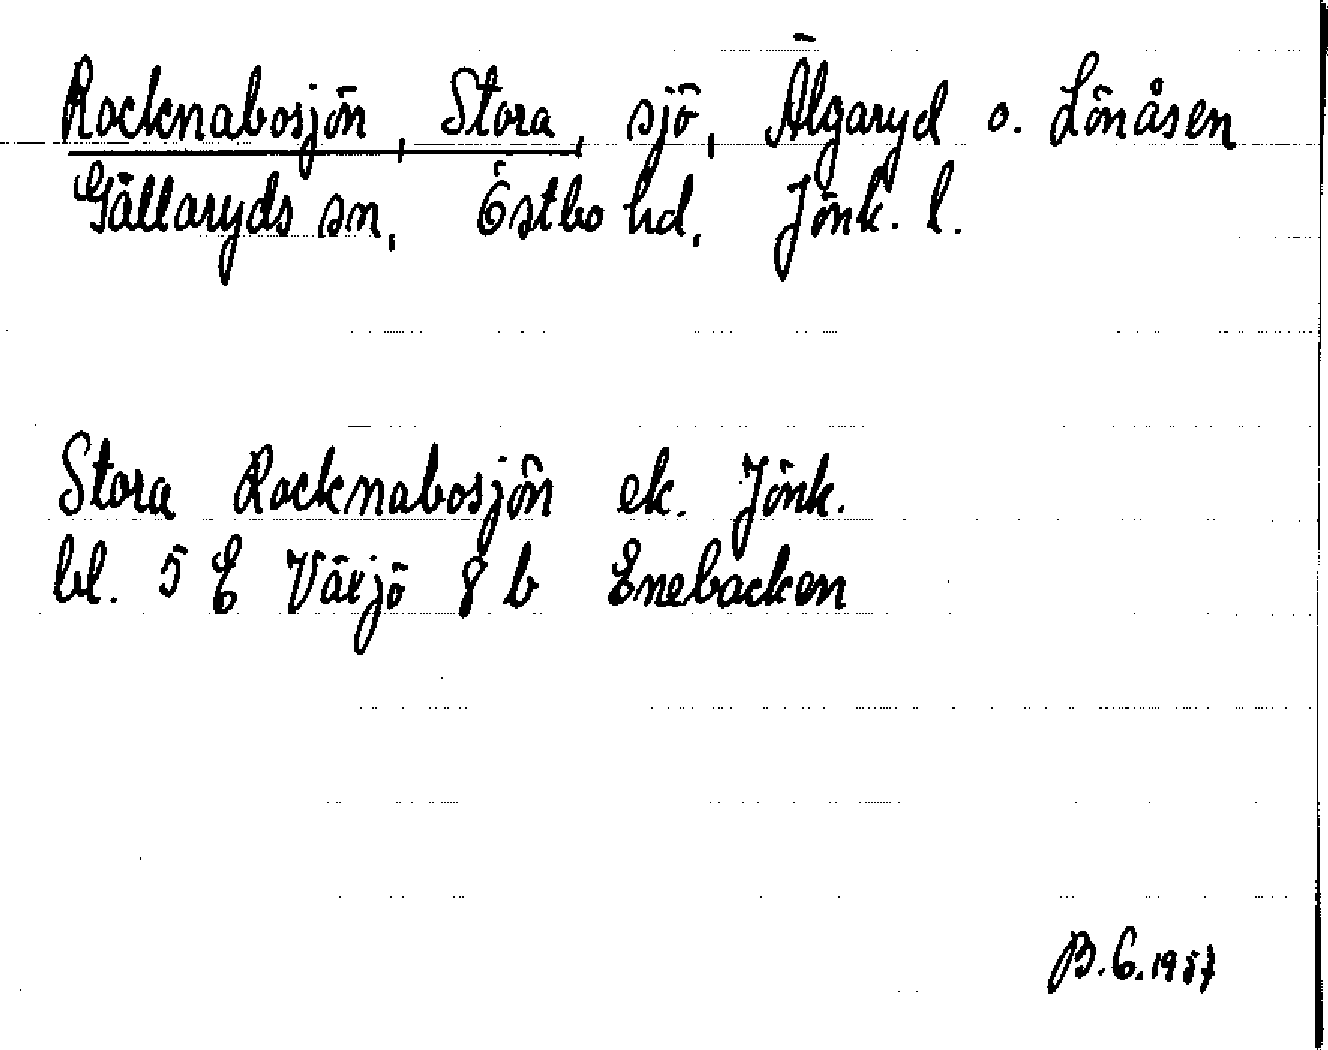 Rocknabosjön, Stora, sjö, Älgaryd o. Lönåsen
Gällaryds sn, Östbo hd, Jönk. l.
Stora Rocknabosjön ek. Jönk.
bl. 5 E Växjö 8 b Enebacken